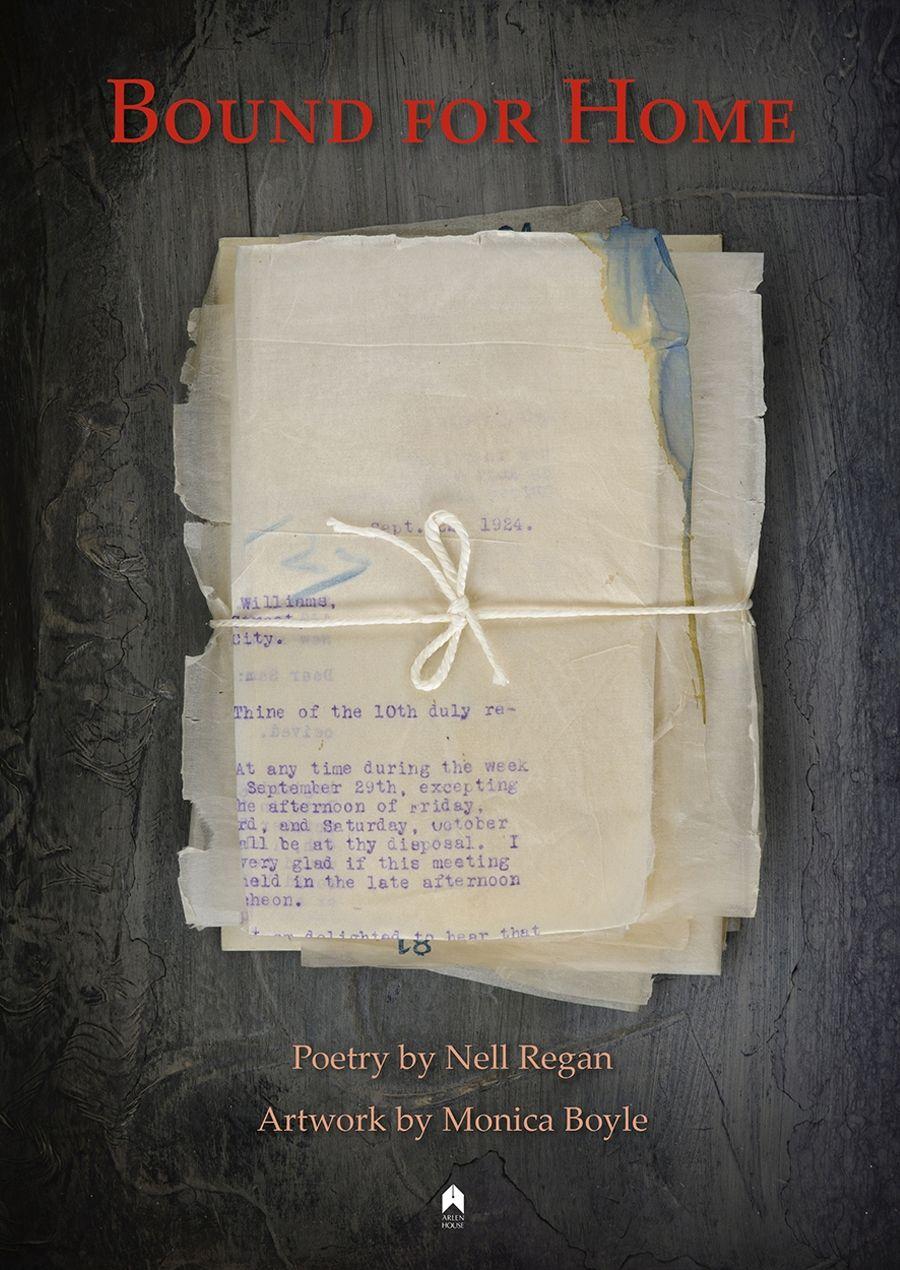 BOUND FOR HOME
Sept. 1924.
Williams,
City.
Dear Sam:
Thine of the 10th duly re-
ceived.
At any time during the week
September 29th, excepting
he afternoon of Friday,
rd, and Saturday, October
all be at thy disposal. I
very glad if this meeting
held in the late afternoon
cheon.
t am delighted to hear that
81
Poetry by Nell Regan
Artwork by Monica Boyle
ARLEN
HOUSE